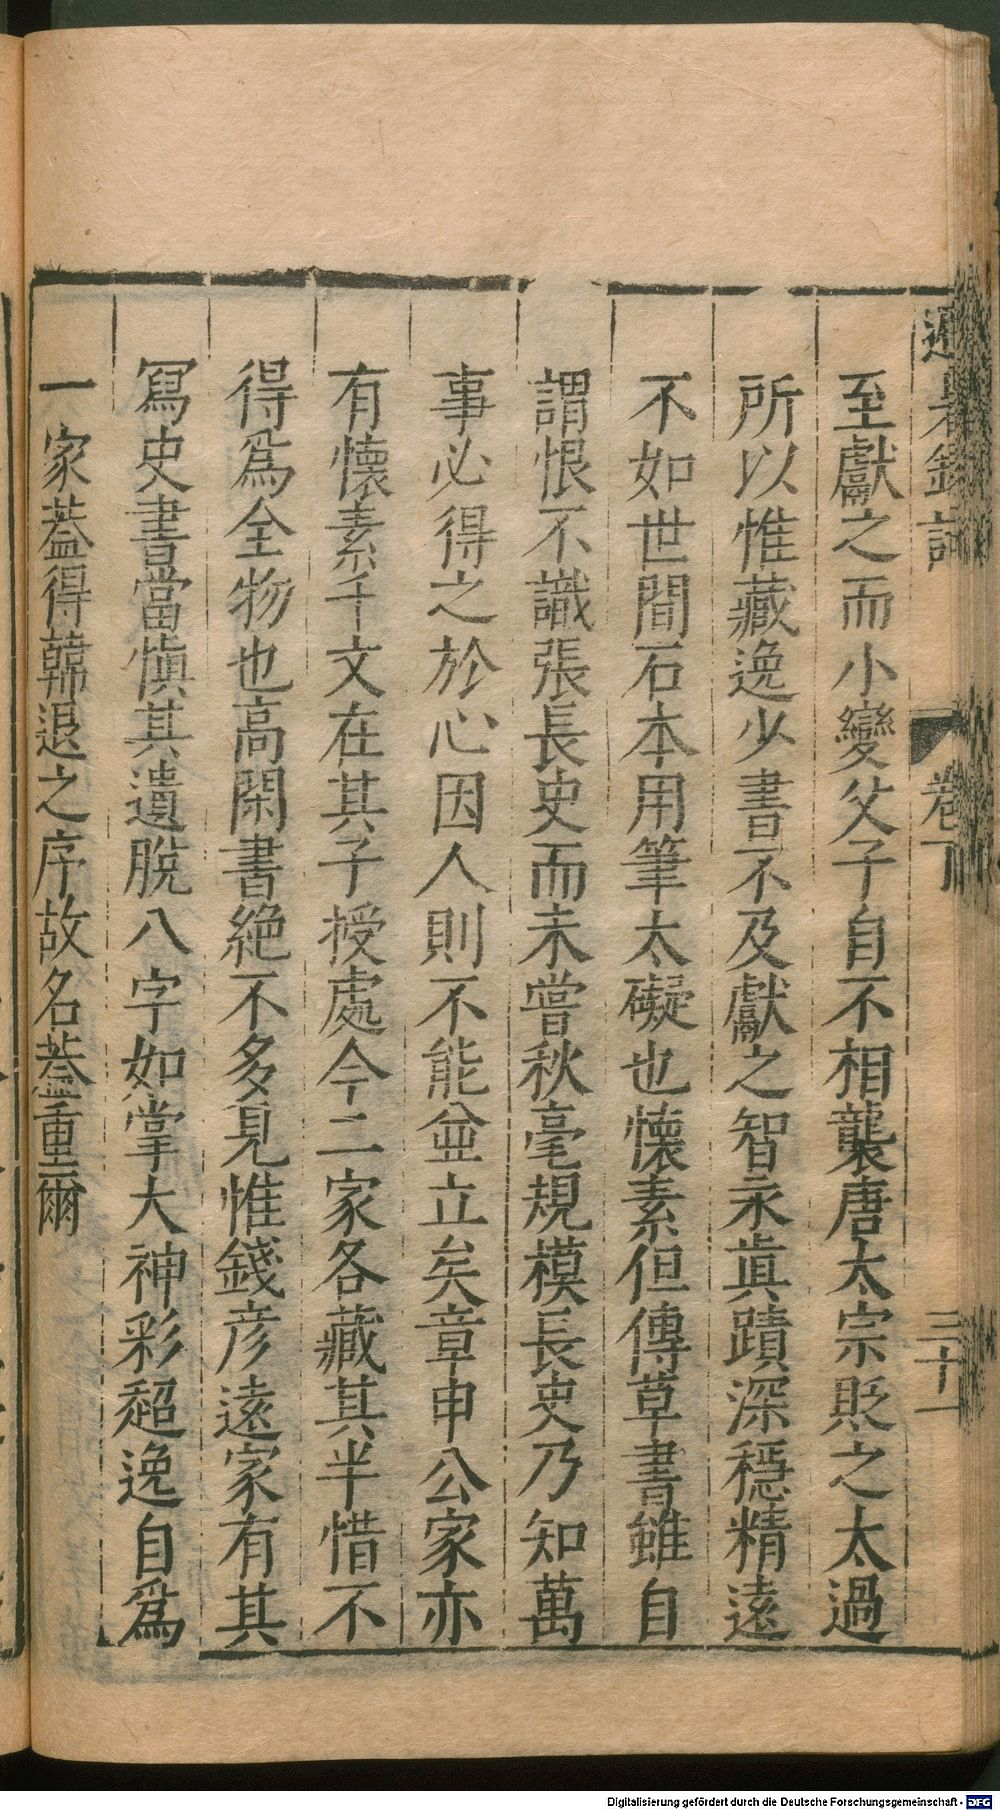 避暑錄話
卷下
三十一
至獻之而小變父子自不相襲唐太宗貶之太過
所以惟藏逸少書不及獻之智永眞蹟深穩精遠
不如世間石本用筆太礙也懷素但傳草書雖自
謂恨不識張長史而未嘗秋毫規模長史乃知萬
事必得之於心因人則不能並立矣章申公家亦
有懷素千文在其子授處今二家各藏其半惜不
得爲全物也高閑書絶不多見惟錢彦遠家有其
冩史書當慎其遺脫八字如掌大神彩超逸自爲
一家葢得韓退之序故名葢重爾
Digitalisierung gefördert durch die Deutsche Forschungsgemeinschaft - DFG